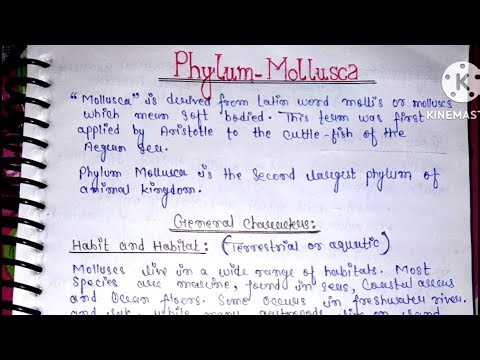 Phylum-Mollusca
"Mollusca" is derived from Latin word mollis or molluscs
which mean soft bodied. This term was first
applied by Aristotle to the cuttle-fish of the
Aegean sea.
Phylum Mollusca is the second largest phylum of
animal kingdom.
General Characters:
Habit and Habitat: (Terrestrial or aquatic)
Molluscs live in a wide range of habitats. Most
species are marine, found in seas, Coastal areas
and Ocean floors. Some occurs in freshwater river
and while many live on land
KINEMAST